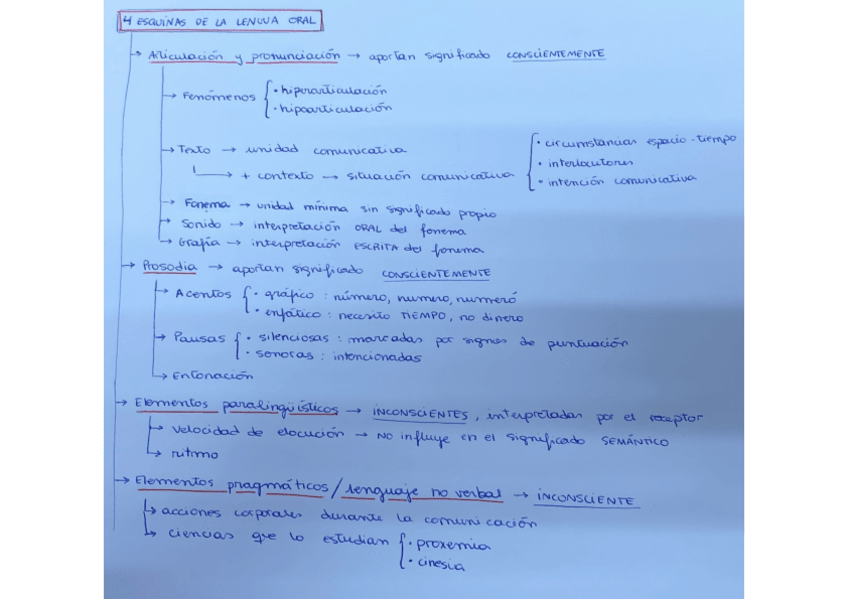 4 ESQUINAS DE LA LENGUA ORAL
→ Articulación y pronunciación → aportan significado CONSCIENTEMENTE
→ Fenómenos { · hiperarticulación
· hipoarticulación
→ Texto → unidad comunicativa
→ + contexto → situación comunicativa { · circumstancias espacio-tiempo
· interlocutores
· intención comunicativa
→ Fonema → unidad mínima sin significado propio
→ Sonido → interpretación ORAL del fonema
→ Grafía → interpretación ESCRITA del fonema
→ Prosodia → aportan significado CONSCIENTEMENTE
→ Acentos { · gráfico : número, numero, numeró
· enfático : necesito TIEMPO, no dinero
→ Pausas { · silenciosas : marcadas por signos de puntuación
· sonoras : intencionadas
→ Entonación
→ Elementos paralingüísticos → INCONSCIENTES, interpretadas por el receptor
→ velocidad de elocución → NO influye en el significado SEMÁNTICO
→ ritmo
→ Elementos pragmáticos / lenguaje no verbal → INCONSCIENTE
→ acciones corporales durante la comunicación
→ ciencias que lo estudian { · proxemia
· cinesia